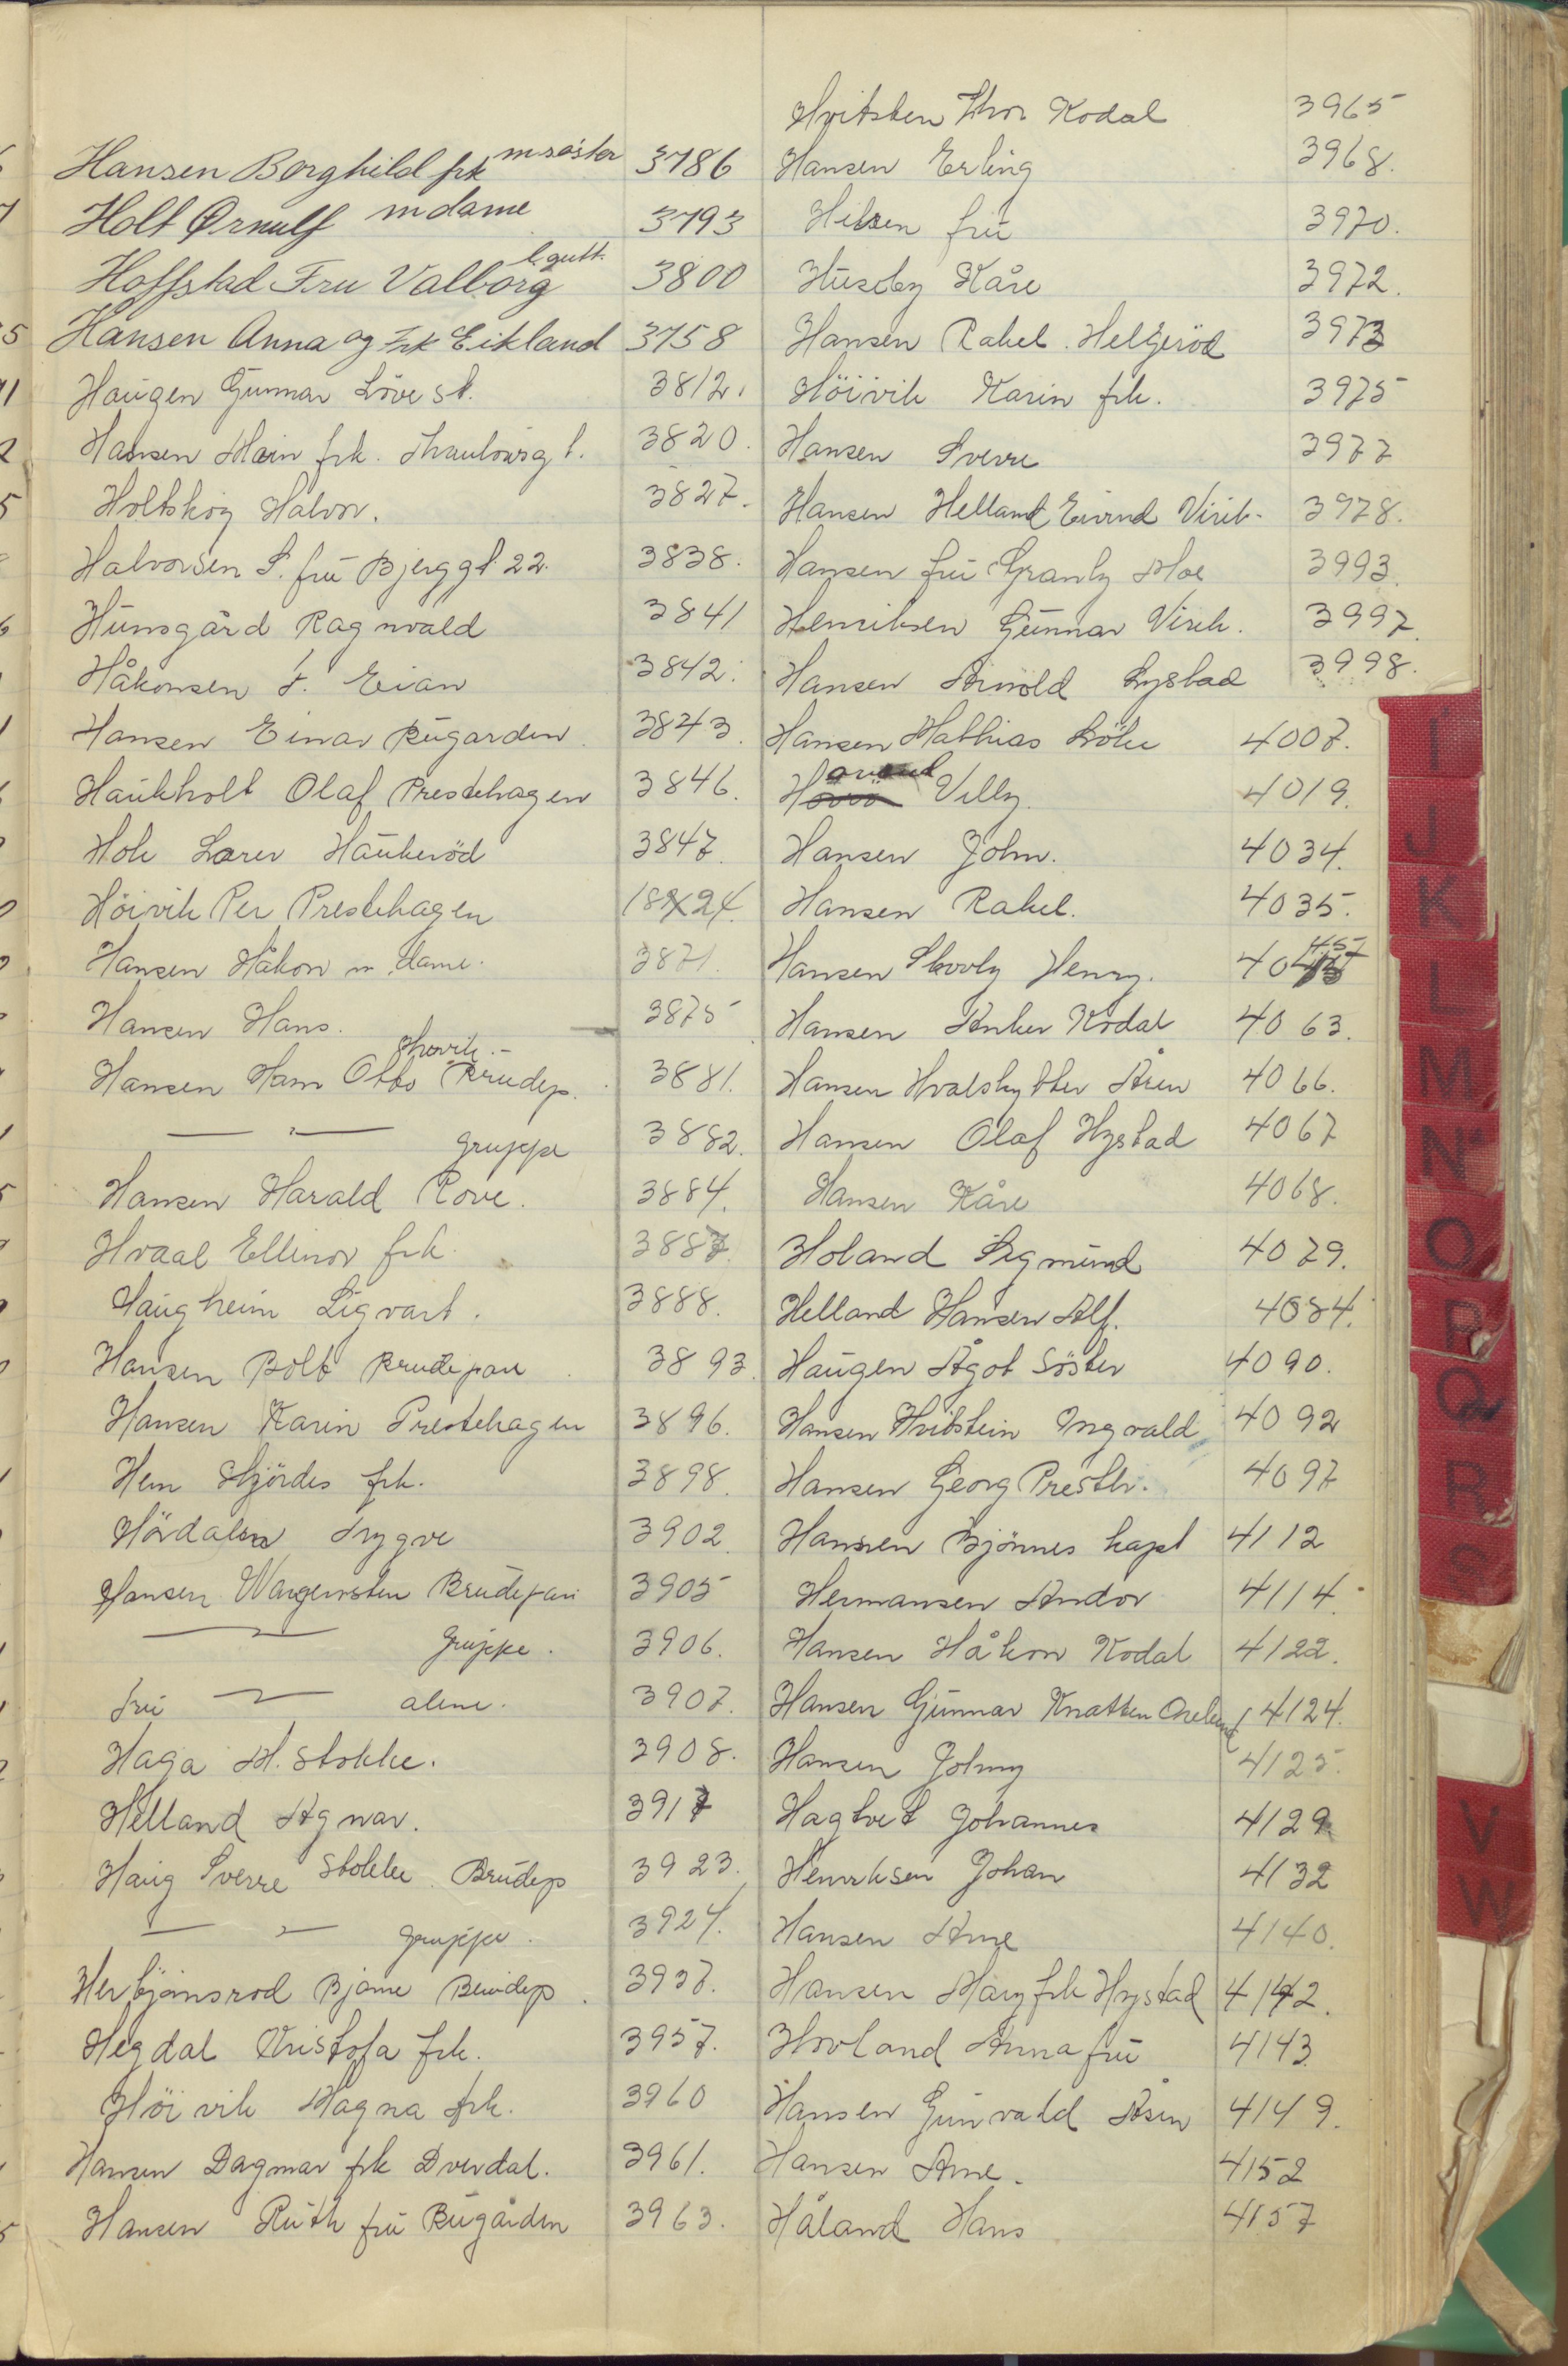 Hansen Borghild frk m søster 3786
Holt Ørnulf m dame 3793
Hoffstad Fru Valborg l. gutt. 3800
Hansen Anna og Frk Eikland 3758
Haugen Gunnar Löve st. 3812.
Hansen frk. 3820.
Holtskog Halvor. 3827.
Halvorsen S. fru Bjerggt. 22. 3838.
Hunsgård Ragnvald 3841
Håkonsen F. Eian 3842.
Hansen Einar Bugården 3843.
Haukholt Olaf Prestehagen 3846.
Hole Haukeröd 3847.
Höivik Per Prestehagen 24
Hansen Håkon m. dame. 3871.
Hansen Hans. 3875
Hansen Otto Brudep. 3881.
— " — gruppe 3882.
Hansen Harald Rove. 3884.
Hvaal Ellinor frk. 3887
Haugheim Sigvart. 3888.
Hansen Bolt Brudepar 3893.
Hansen Karin Prestehagen 3896.
Hem Hjördis frk. 3898.
Hördalen Trygve 3902.
Hansen Brudepar 3905
— " — Gruppe. 3906.
Fru — " — alene. 3907.
Haga M. Stokke. 3908.
Helland Agnar. 3917
Haug Sverre Stokke Brudep 3923.
— " — gruppe. 3924.
Herbjörnsrod Bjarne Brudep. 3937.
Hegdal Kristofa frk. 3957.
Höivik Magna frk. 3960
Hansen Dagmar frk Dverdal. 3961.
Hansen Ruth fru Bugården 3963.
Hvitsten Thor Kodal 3965
Hansen Erling 3968.
Hilsen fru 3970.
Huseby Kåre 3972.
Hansen Rakel. Helgeröd 3973
Höivik Karin frk. 3975
Hansen Sverre 3977
Hansen Helland Eivind Virik. 3978.
Hansen fru Granly Moe 3993.
Henriksen Gunnar Virik. 3997.
Hansen Arnold Nystad 3998.
Hansen Mathias 4007.
Villy. 4019.
Hansen John. 4034.
Hansen Rakel. 4035.
Hansen Skovly Henry. 4045
Hansen Anker Kodal 4063.
Hansen Hvalskytter Åsen 4066.
Hansen Olaf Hystad 4067
Hansen Kåre 4068.
Holand Sigmund 4079.
Helland Hansen Alf. 4084.
Haugen Ågot Söster 4090.
Hansen Hvitstein Ingvald 4092
Hansen Georg Presth. 4097
Hansen Bjönnes kapt 4112
Hermansen Andor 4114.
Hansen Håkon Kodal 4122.
Hansen Gunnar Knatten 4124.
Hansen Johny 4125.
Hagtvet Johannes 4129
Henriksen Johan 4132
Hansen Arne 4140.
Hansen Mary frk Hystad 4142.
Hovland Anna fru 4143
Hansen Gunvald Åsen 4149.
Hansen Arne. 4152
Håland Hans 4157
I
J
K
L
M
N
O
P
Q
R
S
V
W